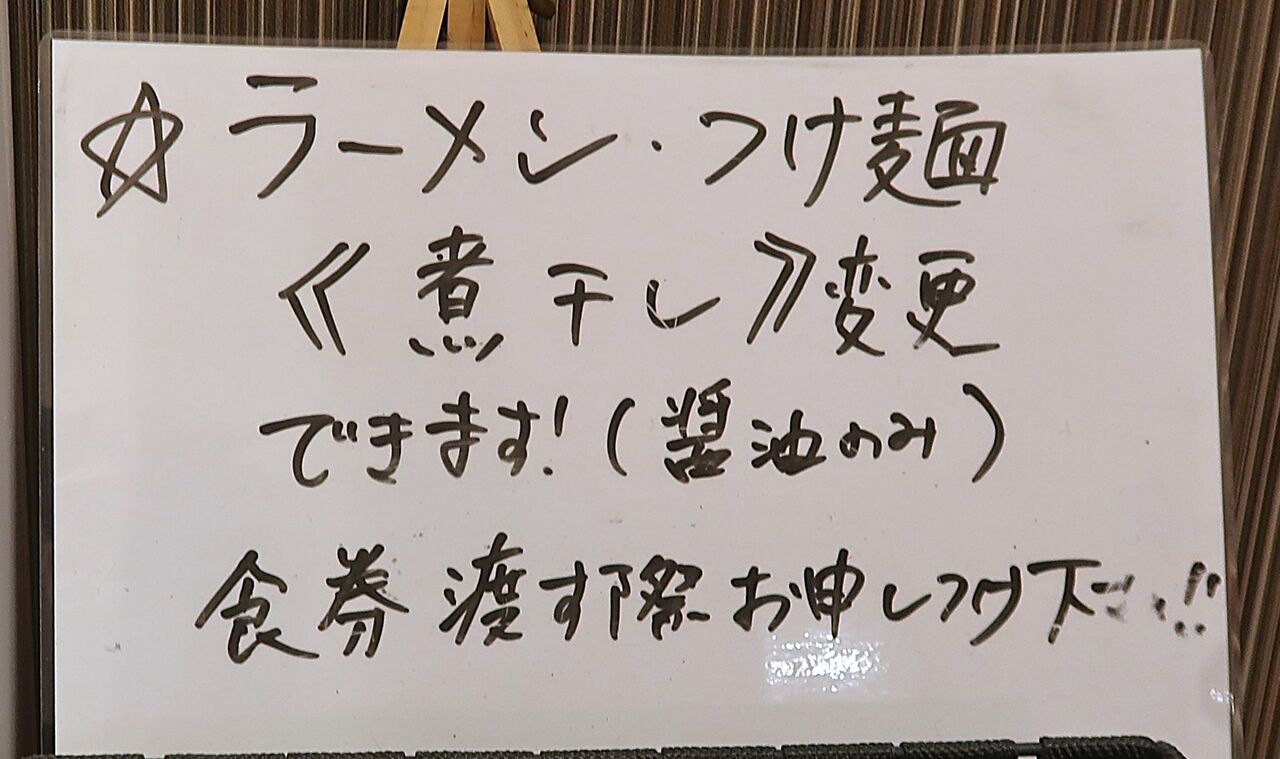 ☆ラーメン・つけ麺
《煮干し》変更
できます!(醤油のみ)
食券渡す際お申しつけ下